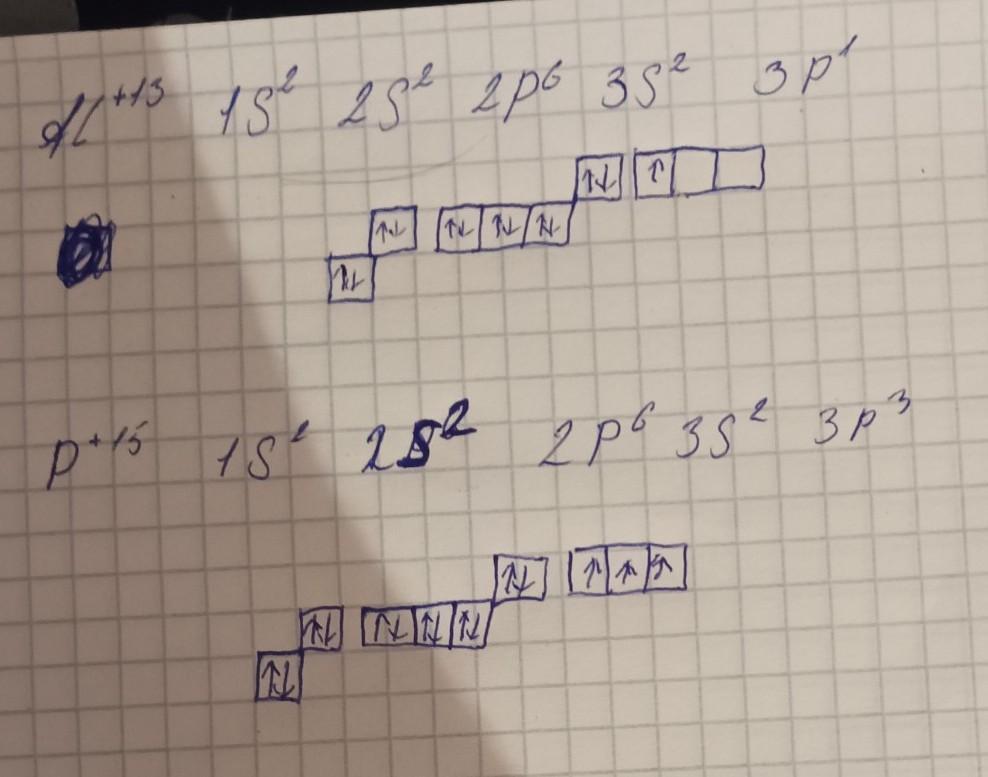 Al⁺¹³ 1S² 2S² 2P⁶ 3S² 3P¹
↑↓ ↑
↑↓ ↑↓ ↑↓ ↑↓
↑↓
P⁺¹⁵ 1S² 2S² 2P⁶ 3S² 3P³
↑↓ ↑ ↑ ↑
↑↓ ↑↓ ↑↓ ↑↓
↑↓